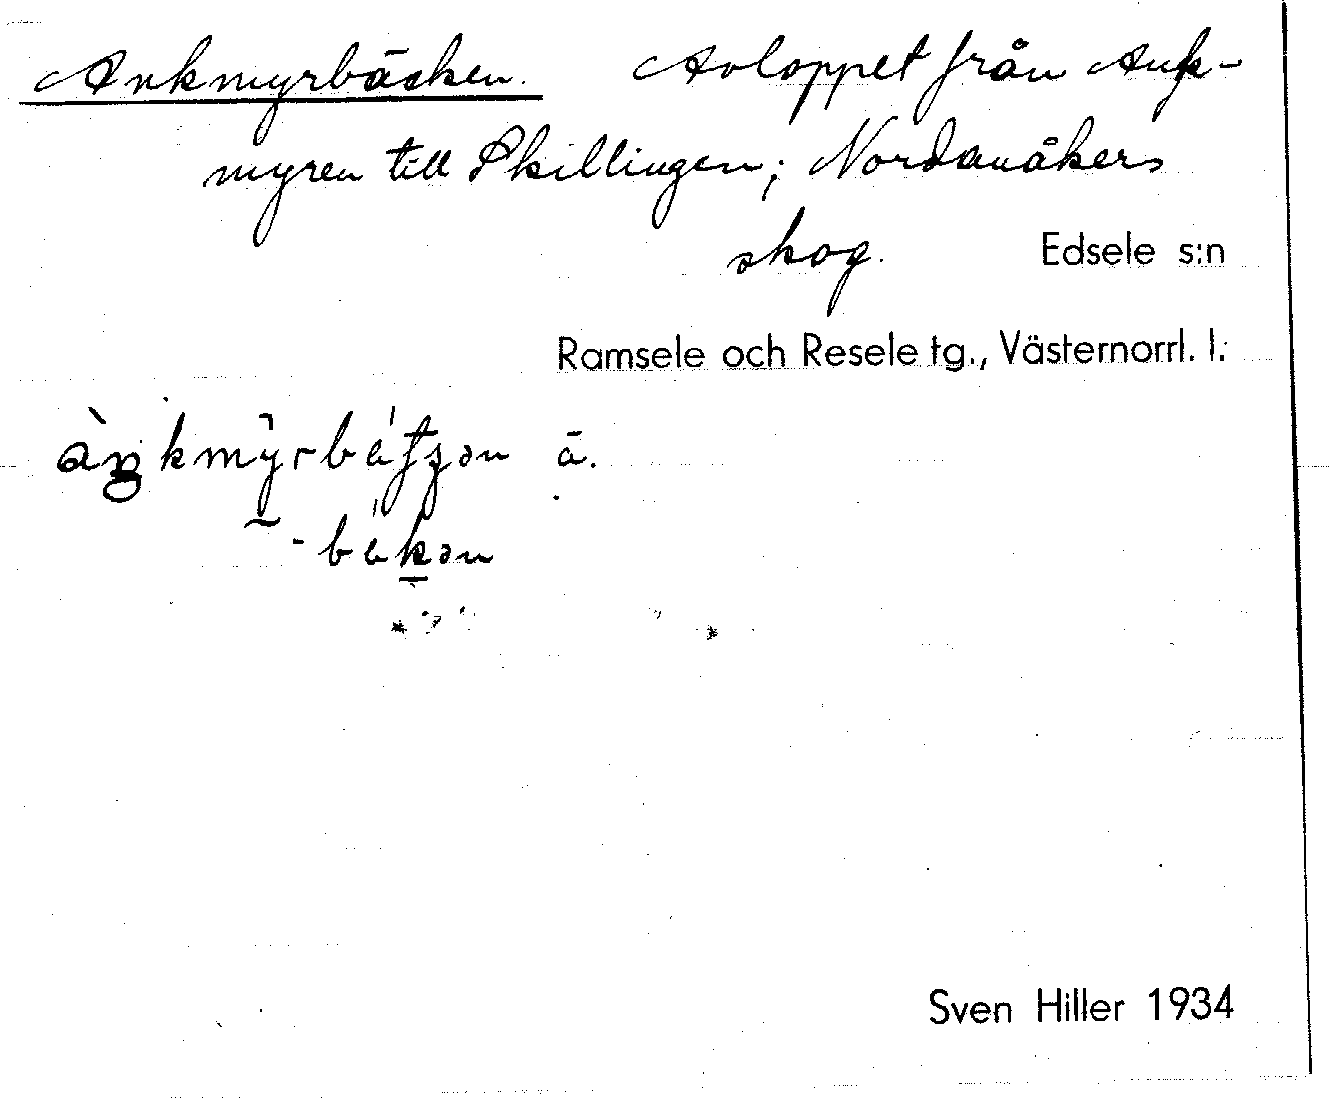 Ankmyrbäcken. Avloppet från Ank-
myren till Skillingen; Nordanåkers
skog. Edsele s:n
Ramsele och Resele tg., Västernorrl. l.
ā.
Sven Hiller 1934